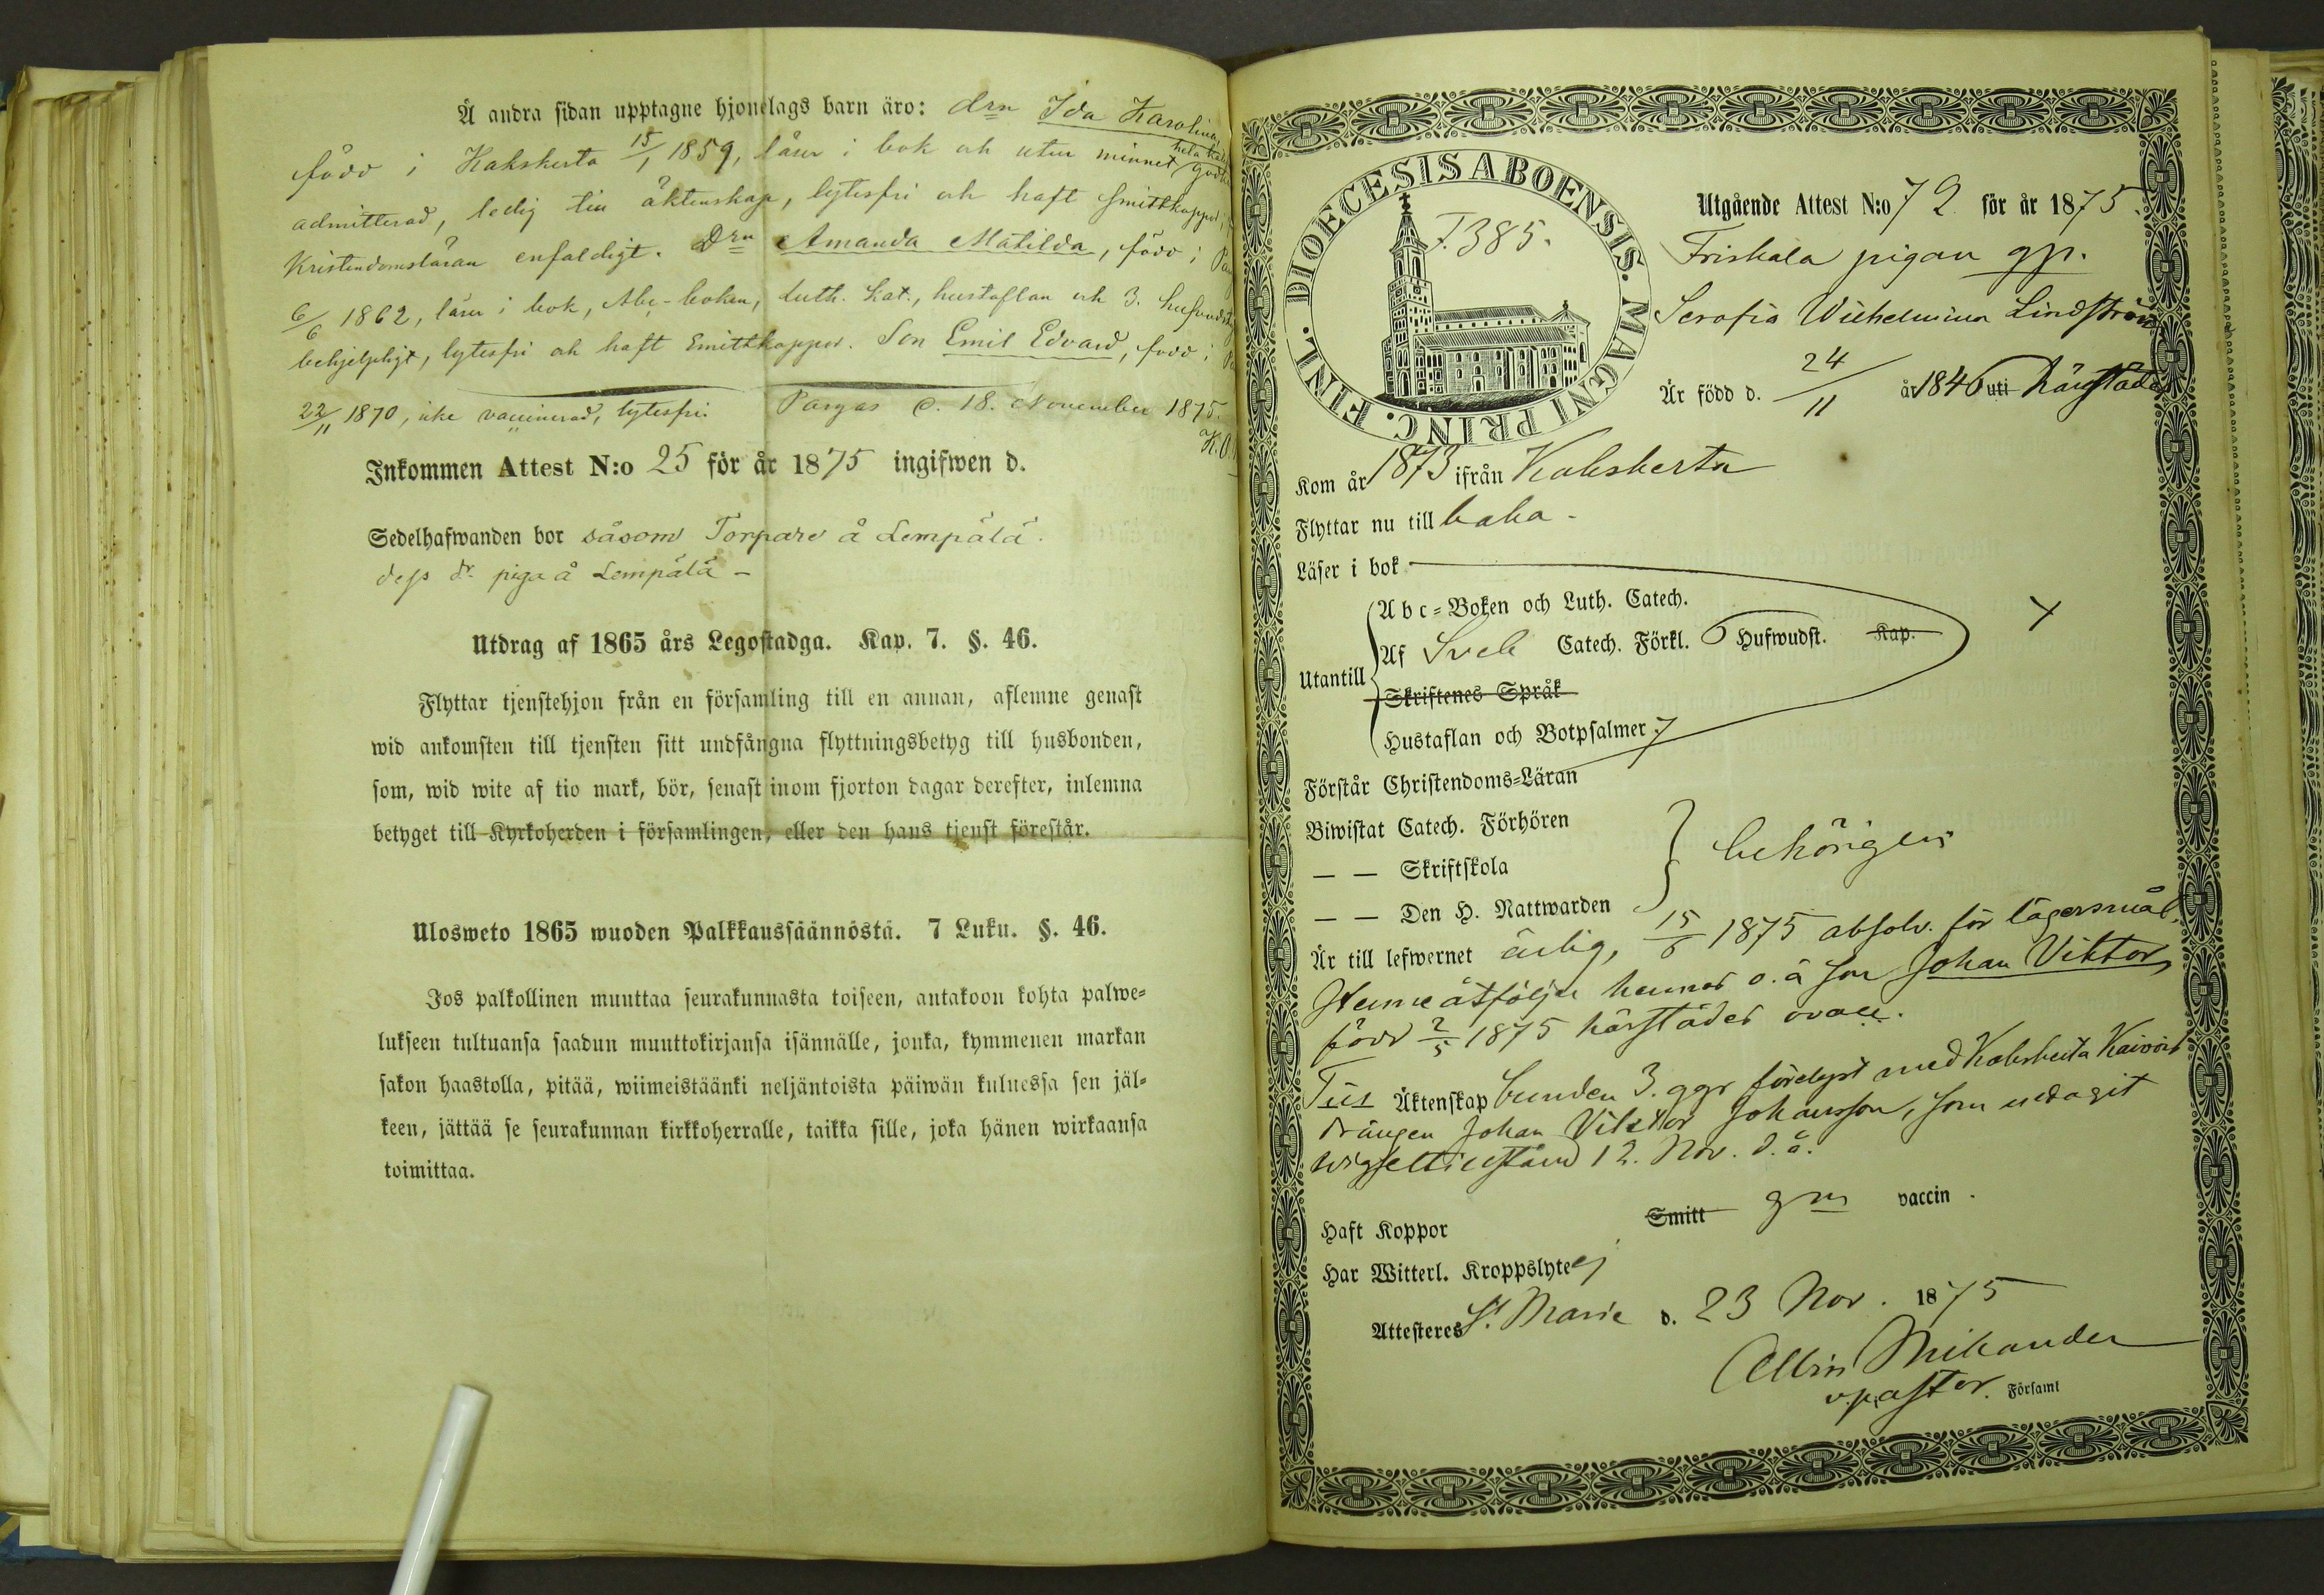 Å andra sidan upptagne hjonelags barn äro: drn Ida Karolina
född i Kakskerta 15/1 1859, läser i bok och utur minnet hela
admitterad, ledig till äktenskap, lytesfri och haft Smittkoppor,
Kristendomsläran enfaldigt. Drn Amanda Matilda, född i
6/6 1862, läser i bok, Abc-boken, Luth. Kat., hustaflan och 3.
behjelpligt, lytesfri och haft Smittkoppor. Son Emil Edvard, född i
22/11 1870, icke vaccinerad, lytesfri. Pargas d. 18. November 1875.
Inkommen Attest N:o 25 för år 1875 ingifwen d.
Sedelhafwanden bor såsom Torpare å Lempälä.
dess dr. piga å Lempälä -
Utdrag af 1865 års Legostadga. Kap. 7. §. 46.
Flyttar tjenstehjon från en församling till en annan, aflemne genast
wid ankomsten till tjensten sitt undfångna flyttningsbetyg till husbonden,
som, wid wite af tio mark, bör, senast inom fjorton dagar derefter, inlemna
betyget till Kyrkoherden i församlingen, eller den hans tjenst förestår.
Ulosweto 1865 wuoden Palkkaussäännöstä. 7 Luku. §. 46.
Jos palkollinen muuttaa seurakunnasta toiseen, antakoon kohta palwe-
lukseen tultuansa saadun muuttokirjansa isännälle, jonka, kymmenen markan
sakon haastolla, pitää, wiimeistäänki neljäntoista päiwän kuluessa sen jäl-
keen, jättää se seurakunnan kirkkoherralle, taikka sille, joka hänen wirkaansa
toimittaa.
DIOECESIS ABOENSIS. MAGNI PRINC. FINL.
F. 385.
Utgående Attest N:o 72 för år 1875.
Friskala pigan gp.
Serafia Wilhelmina Lindström
Är född d. 24/11 år 1846 uti härstädes
Kom år 1873 ifrån Kakskerta
Flyttar nu till baka -
Läser i bok
Abc-Boken och Luth. Catech.
Utantill Af Sveb Catech. Förkl. 6 Hufwudst. Kap.
Skriftenes Språk
Hustaflan och Botpsalmer 7
Förstår Christendoms-Läran
Biwistat Catech. Förhören
— — Skriftskola behörigen
— — Den H. Nattwarden
Är till lefwernet ärlig, 15/6 1875 absolv. för lägersmål.
Henne åtföljer hennes o. ä son Johan Viktor,
född 2/5 1875 härstädes ovacc.
Till Äktenskap bunden 3. ggr förelyst med Kakskerta
drängen Johan Viktor Johansson, som uttagit
wigselttillstånd 12. Nov. d. å.
Haft Koppor Smitt gm vaccin.
Har Witterl. Kroppslyte ej
Attesteres St. Marie d. 23 Nov. 1875
Albin Mikander
v. pastor. Församl